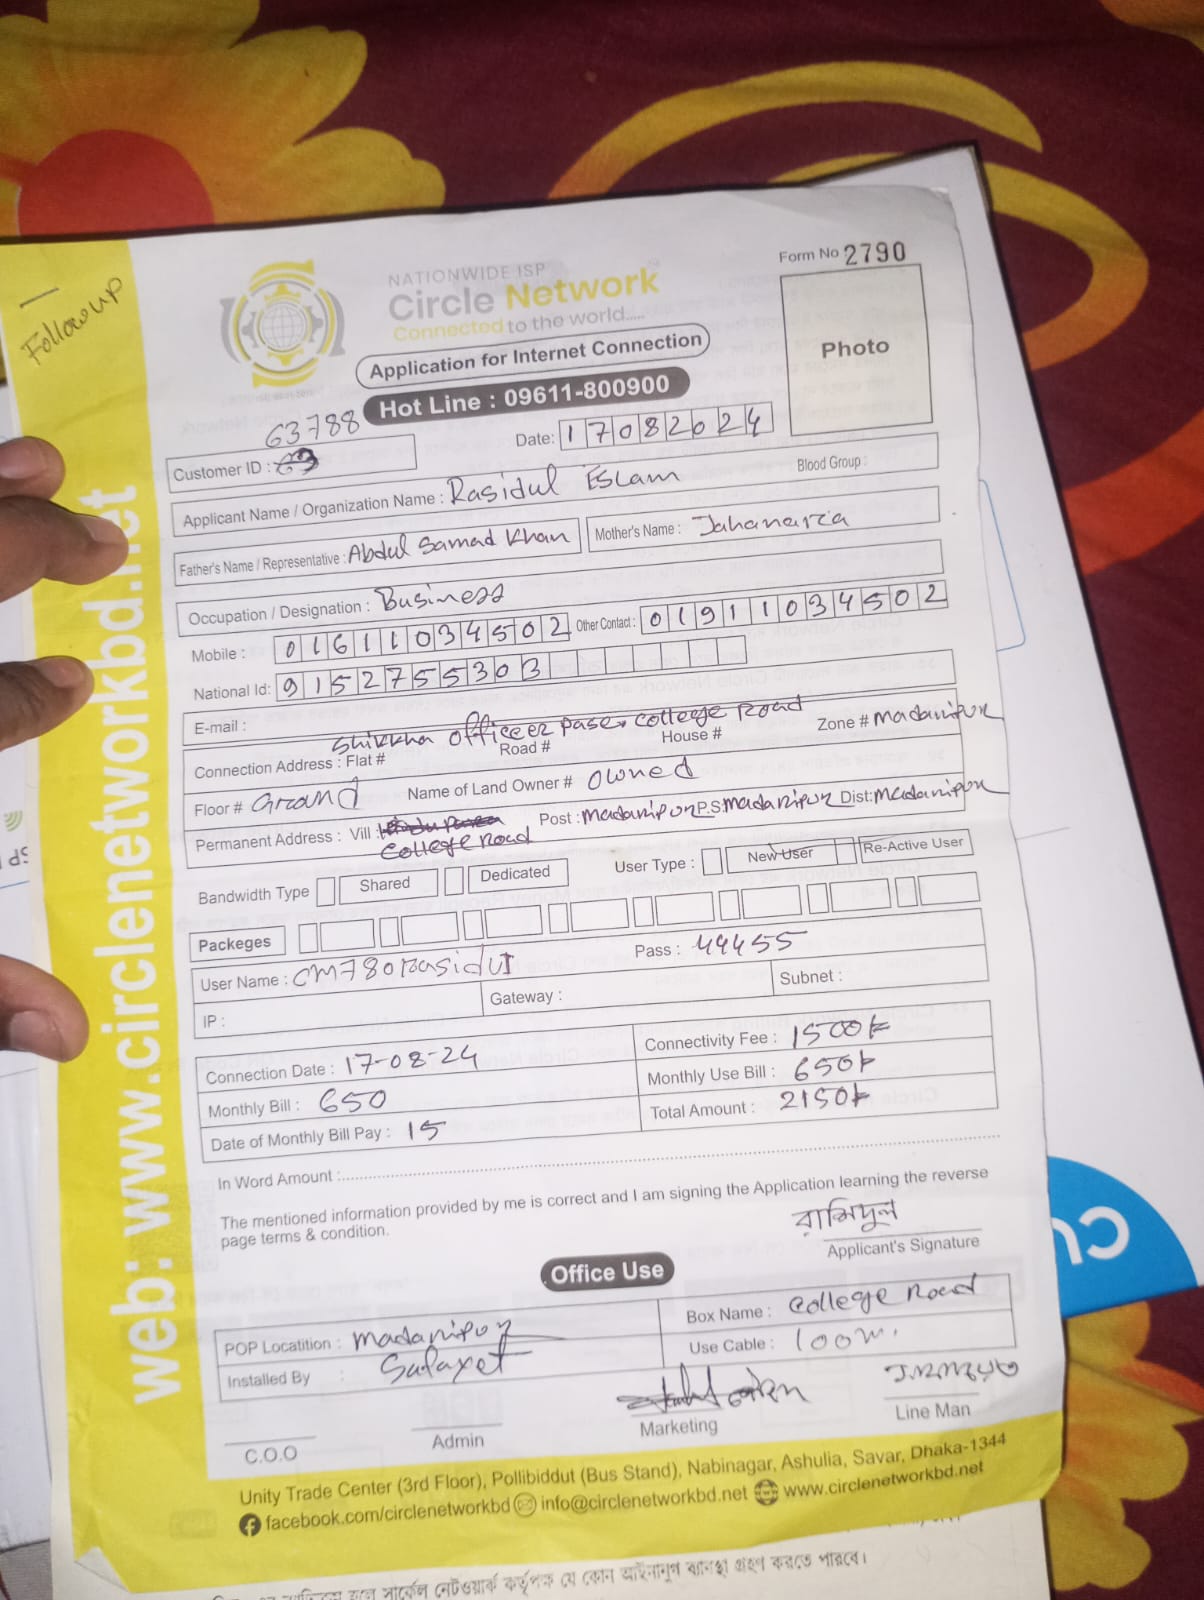 Followup
NATIONWIDE ISP
Circle Network
Connected to the world.....
Form No 2790
Photo
Application for Internet Connection
Hot Line : 09611-800900
63788
Customer ID :
Date: 17082024
Applicant Name / Organization Name : Rasidul Eslam Blood Group :
Father's Name / Representative : Abdul Samad Khan Mother's Name : Jahanara
Occupation / Designation : Business
Mobile : 01611034502 Other Contact : 01911034502
National Id: 9152755303
E-mail :
Shikkha officeer pase, college Road
Connection Address : Flat # Road # House # Zone # madaripur
Floor # Ground Name of Land Owner # Owned
Permanent Address : Vill : Post : madaripur P.S: madaripur Dist: madaripur
College Road
Bandwidth Type Shared Dedicated User Type : New User Re-Active User
Packeges
User Name : CM780Rasidul Pass : 44455
IP : Gateway : Subnet :
Connection Date : 17-08-24 Connectivity Fee : 1500
Monthly Bill : 650 Monthly Use Bill : 650
Date of Monthly Bill Pay : 15 Total Amount : 2150
In Word Amount :
The mentioned information provided by me is correct and I am signing the Application learning the reverse
page terms & condition.
রাসিদুল
Applicant's Signature
Office Use
POP Locatition : madaripur Box Name : College Road
Installed By : Salaxet Use Cable : 100m.
C.O.O Admin Marketing Line Man
Unity Trade Center (3rd Floor), Pollibiddut (Bus Stand), Nabinagar, Ashulia, Savar, Dhaka-1344
facebook.com/circlenetworkbd info@circlenetworkbd.net www.circlenetworkbd.net
web: www.circlenetworkbd.net
সার্কেল নেটওয়ার্ক কর্তৃপক্ষ যে কোন আইনানুগ ব্যবস্থা গ্রহণ করতে পারবে।